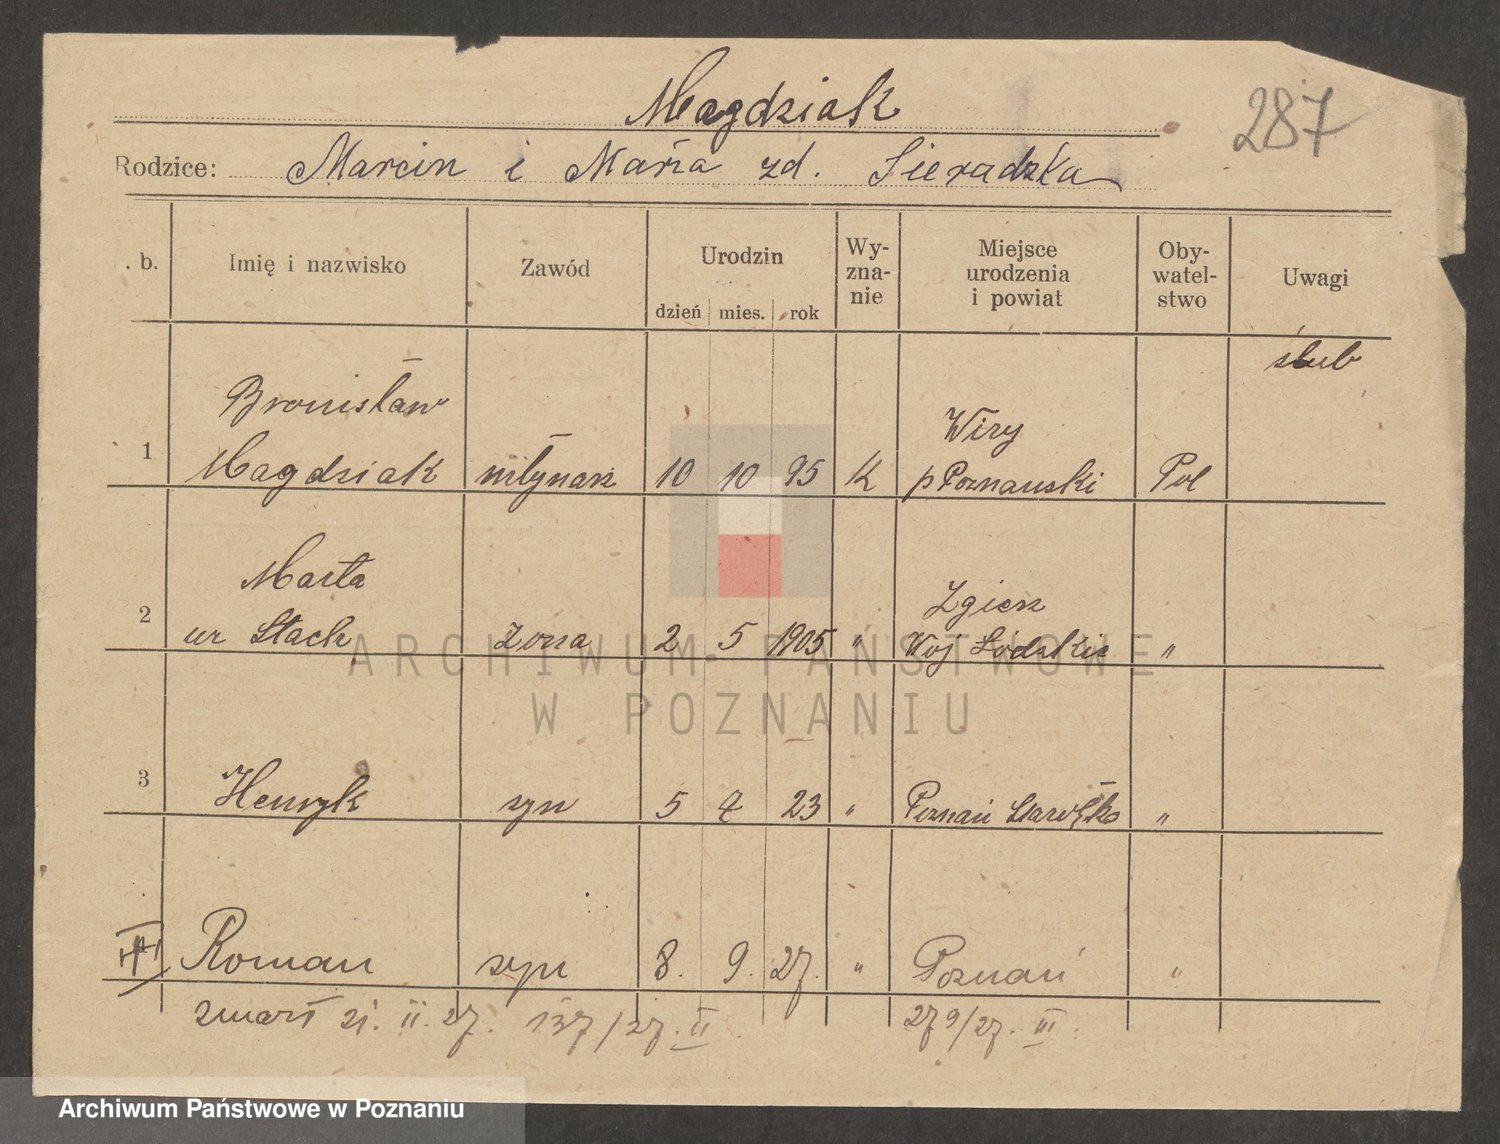 Magdziak
287
Rodzice: Marcin i Maria zd. Sieradzka
. b.
Imię i nazwisko
Zawód
Urodzin
dzień mies. rok
Wy-
zna-
nie
Miejsce
urodzenia
i powiat
Oby-
watel-
stwo
Uwagi
ślub
1
Bronisław
Magdziak
młynarz
10 10 95
K
Wiry
p Poznański
Pol
2
Marta
ur Stach
żona
2 5 1905
"
Zgierz
Woj Łódzkie
"
3
Henryk
syn
5 4 23
"
Poznań Starołęka
"
Roman
syn
8. 9. 27.
"
Poznań
"
zmarł 21. II. 27. 137/27. II
279/27. III.
ARCHIWUM PAŃSTWOWE
W POZNANIU
Archiwum Państwowe w Poznaniu